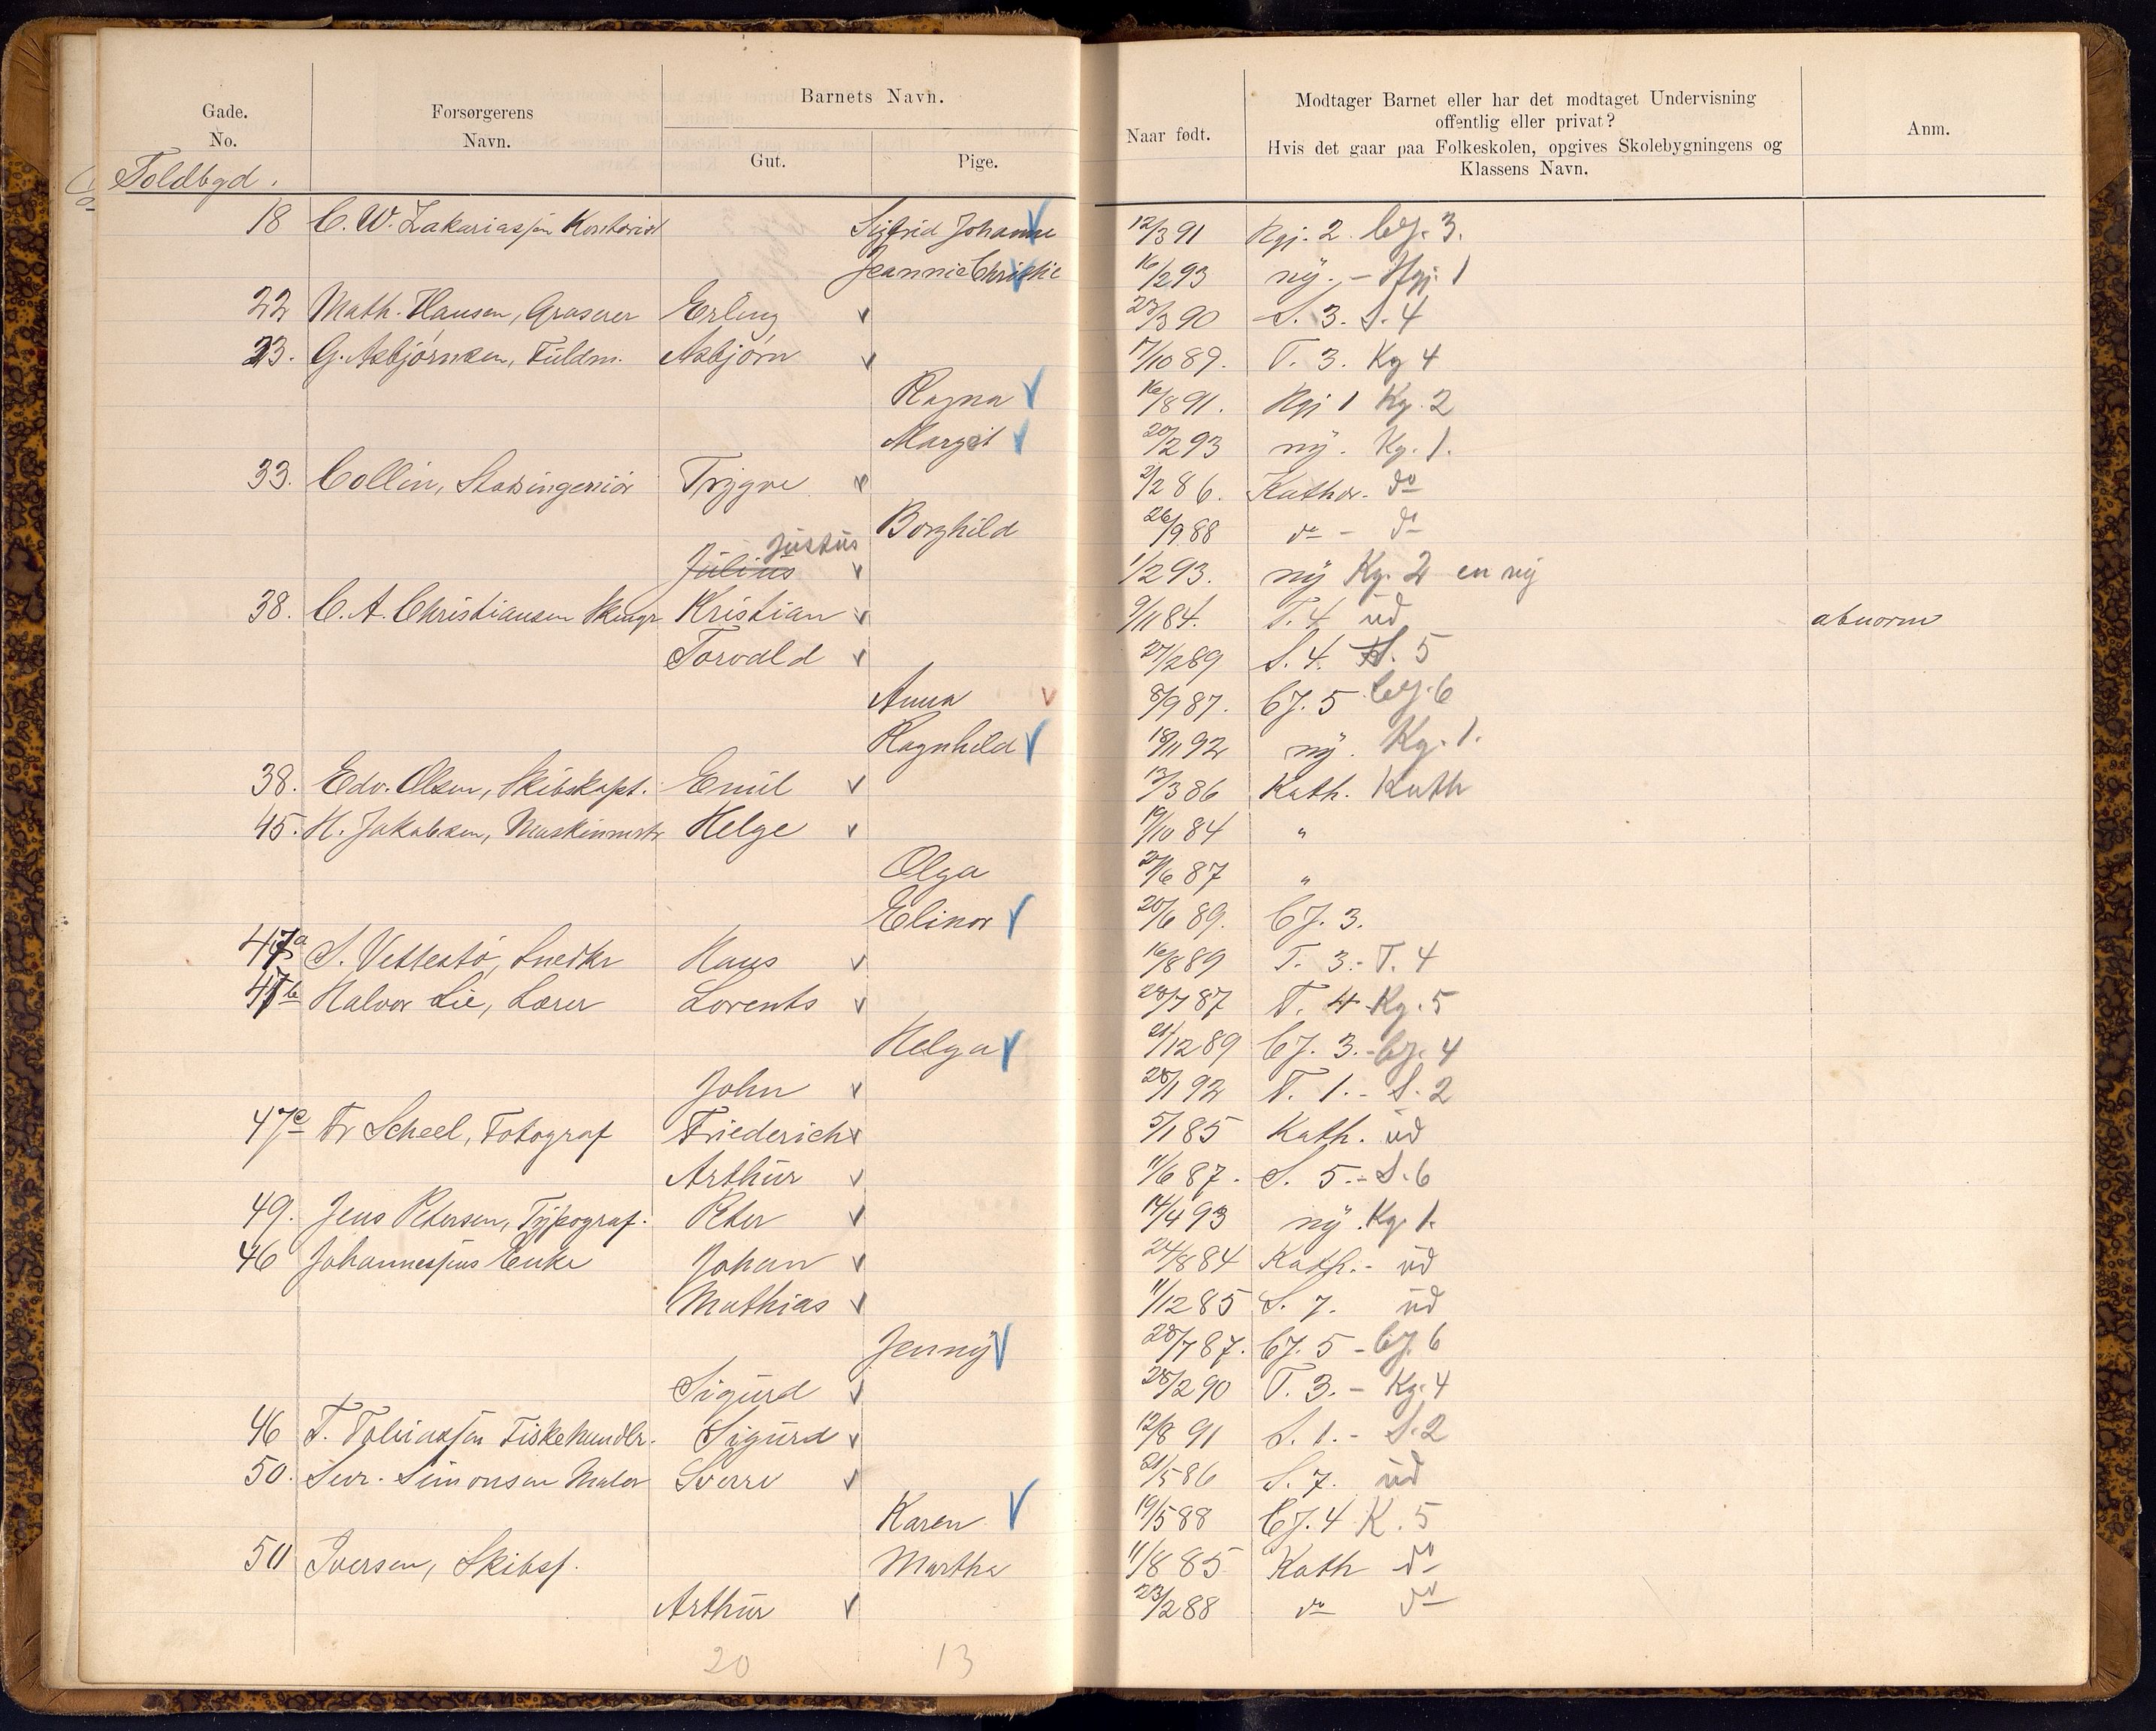 Gade. No. Forsørgerens Navn. Barnets Navn. Gut. Pige. Naar født. Modtager Barnet eller har det modtaget Undervisning offentlig eller privat? Hvis det gaar paa Folkeskolen, opgives Skolebygningens og Klassens Navn. Anm.
Toldbgd.
18 C. W. Zakariassen Kontorist Sigfrid Johanne 12/3 91 Kgj. 2. CJ. 3.
Jeannie Christie 16/2 93 ny. - Kgj. 1
22 Math. Hansen, Graverer Erling 23/3 90 S. 3. S. 4
23. G. Asbjørnsen, Fuldm. Asbjørn 17/10 89. T. 3. Kg 4
Ragna 16/8 91. Kgj 1 Kg. 2
Margit 20/2 93 ny. Kg. 1.
33. Collin, Stadsingeniør Trygve 2/2 86. Kathdr. do
Borghild 26/9 88 do - do
Julius Justus 1/2 93. ny Kg. 2 en ny
38. C. A. Christiansen Kristian 9/11 84. T. 4 ud abnorm
Torvald 27/2 89 S. 4. S. 5
Anna 8/9 87. CJ. 5 CJ. 6
Ragnhild 18/11 92 ny. Kg. 1.
38. Edv. Olsen, Skibskapt. Emil 13/3 86 Kath. Kath
45. H. Jakobsen, Maskinmstr Helge 19/10 84 "
Olga 27/6 87 "
Elinor 20/6 89. CJ. 3.
47a S. Vettestø, Snedkr Hans 16/8 89 T. 3. - T. 4
47b Halvor Lie, Lærer Lorents 28/7 87 T. 4 Kg. 5
Helga 21/12 89 CJ. 3. - CJ. 4
John 28/1 92 T. 1. - S. 2
47c Fr Scheel, Fotograf Friederich 5/1 85 Kath. ud
Arthur 11/6 87. S. 5. - S. 6
49. Jens Petersen, Typograf. Peter 14/4 93 ny. Kg. 1.
46 Johannessens Enke Johan 24/8 84 Kath. - ud
Mathias 11/12 85 S. 7. ud
Jenny 28/7 87. CJ. 5 - CJ. 6
Sigurd 28/2 90 T. 3. - Kg. 4
46 T. Tobiassen Fiskehandlr. Sigurd 12/8 91 S. 1. - S. 2
50. Sevr. Simonsen Maler Sverre 21/5 86 S. 7. ud
Karen 19/5 88 CJ. 4 K. 5
50 Iversen, Skibsf. Martha 11/8 85 Kath do
Arthur 23/2 88 do do
20 13